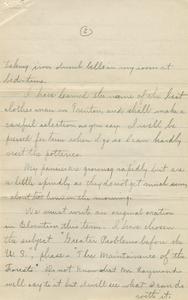 (2)
taking iron dumb bells in my room at
bed-time.
I have learned the name of the best
clothes man in Trenton, and shall make a
careful selection as you say. I will be
pressed for time when I go as I am hardly
visit the potteries.
My pansies are growing rapidly but are
a little spindly, as they do not get much sun,
about hours in the morning.
We must write an original oration
in Elocution this term. I have chosen
the subject "Greater Problems before the
U.S., phase: The Maintenance of the
Forests". Do not know what Mr. Raymond
will say to that, but will see what stands
with it.